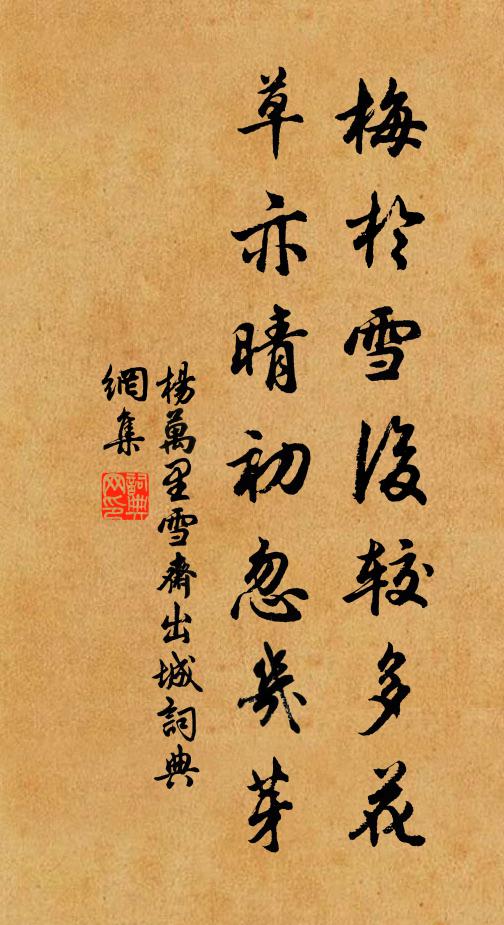 梅於雪後较多花
草亦晴初忽幾芽
楊萬里雪齋出城詞典
網集
詞典网印